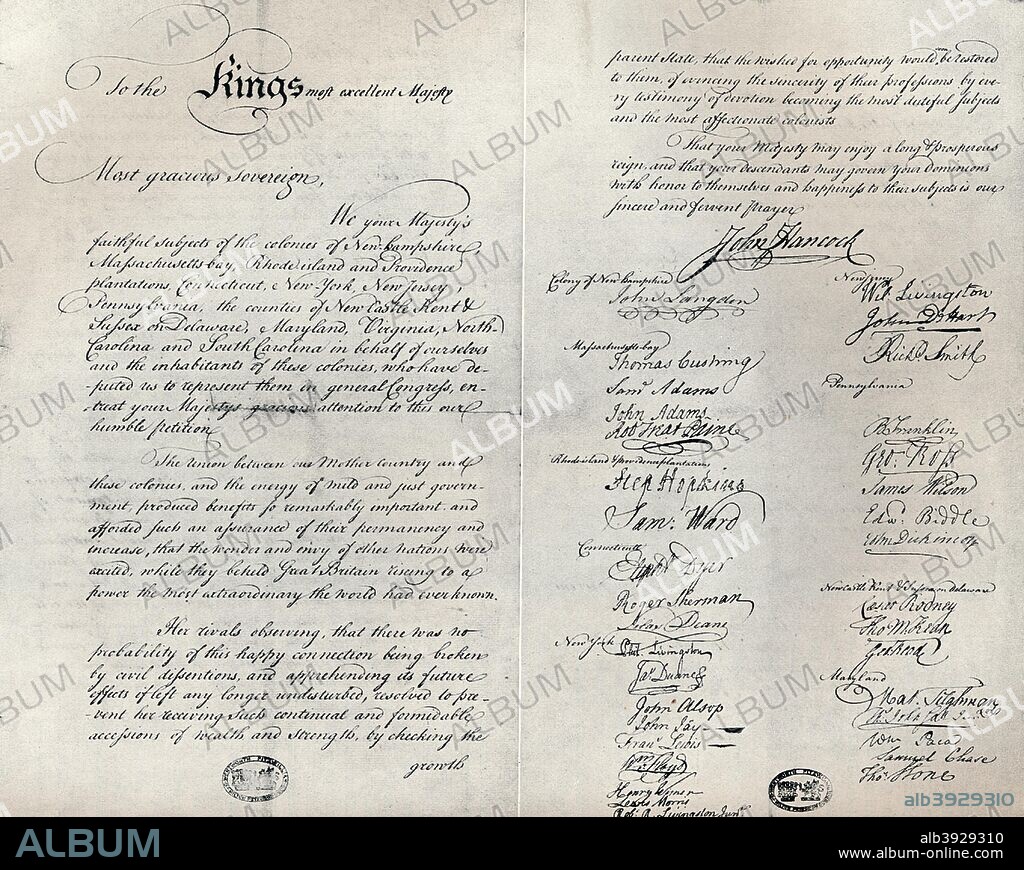 To the Kings most excellent Majesty
Most gracious Sovereign,
We your Majesty's
faithful subjects of the colonies of New-hampshire
Massachusetts-bay, Rhode island and Providence
plantations, Connecticut, New-York, New Jersey
Pennsylvania, the counties of New Castle Kent &
Sussex on Delaware, Maryland, Virginia, North-
Carolina and South Carolina in behalf of ourselves
and the inhabitants of these colonies, who have de-
-puted us to represent them in general Congress, en-
-treat your Majestys gracious attention to this our
humble petition
The union between our Mother Country and
these colonies, and the energy of mild and just govern-
ment, produced benefits so remarkably important and
afforded such an assurance of their permanency and
increase, that the wonder and envy of other nations were
excited, while they beheld Great Britain rising to a
power the most extraordinary the world had ever known.
Her rivals observing, that there was no
probability of this happy connection being broken
by civil dissentions, and apprehending its future
effects if left any longer undisturbed, resolved to pre-
-vent her receiving such continual and formidable
accessions of wealth and strength, by checking the
growth
parent State, that the wished for opportunity would be restored
to them, of evincing the sincerity of their professions by eve-
ry testimony of devotion becoming the most dutiful subjects
and the most affectionate colonists
That your Majesty may enjoy a long & prosperous
reign, and that your descendants may govern your Dominions
with honor to themselves and happiness to their subjects is our
sincere and fervent prayer
John Hancock
Colony of New hampshire
John Langdon
Massachusetts-bay
Thomas Cushing
Saml Adams
John Adams
Robt Treat Paine
Rhode island & providence plantations
Step Hopkins
Sam: Ward
Connecticut
Elipht Dyer
Roger Sherman
Silas Deane
New York
Phil. Livingston
Jas Duane
John Alsop
John Jay
Frans Lewis
Wm Floyd
Henry Wisner
Lewis Morris
Rob. R. Livingston Junr
New Jersey
Wil Livingston
John D Hart
Richd Smith
Pennsylvania
B Franklin
Geo: Ross
James Wilson
Edwd Biddle
Newcastle Kent & Sussex on Delaware
Cæsar Rodney
Tho M:Kean
Geo Read
Maryland
Mat. Tilghman
Wm Paca
Samuel Chase
Thos Stone
alb3929310
ALBUM
alb3929310
www.album-online.com